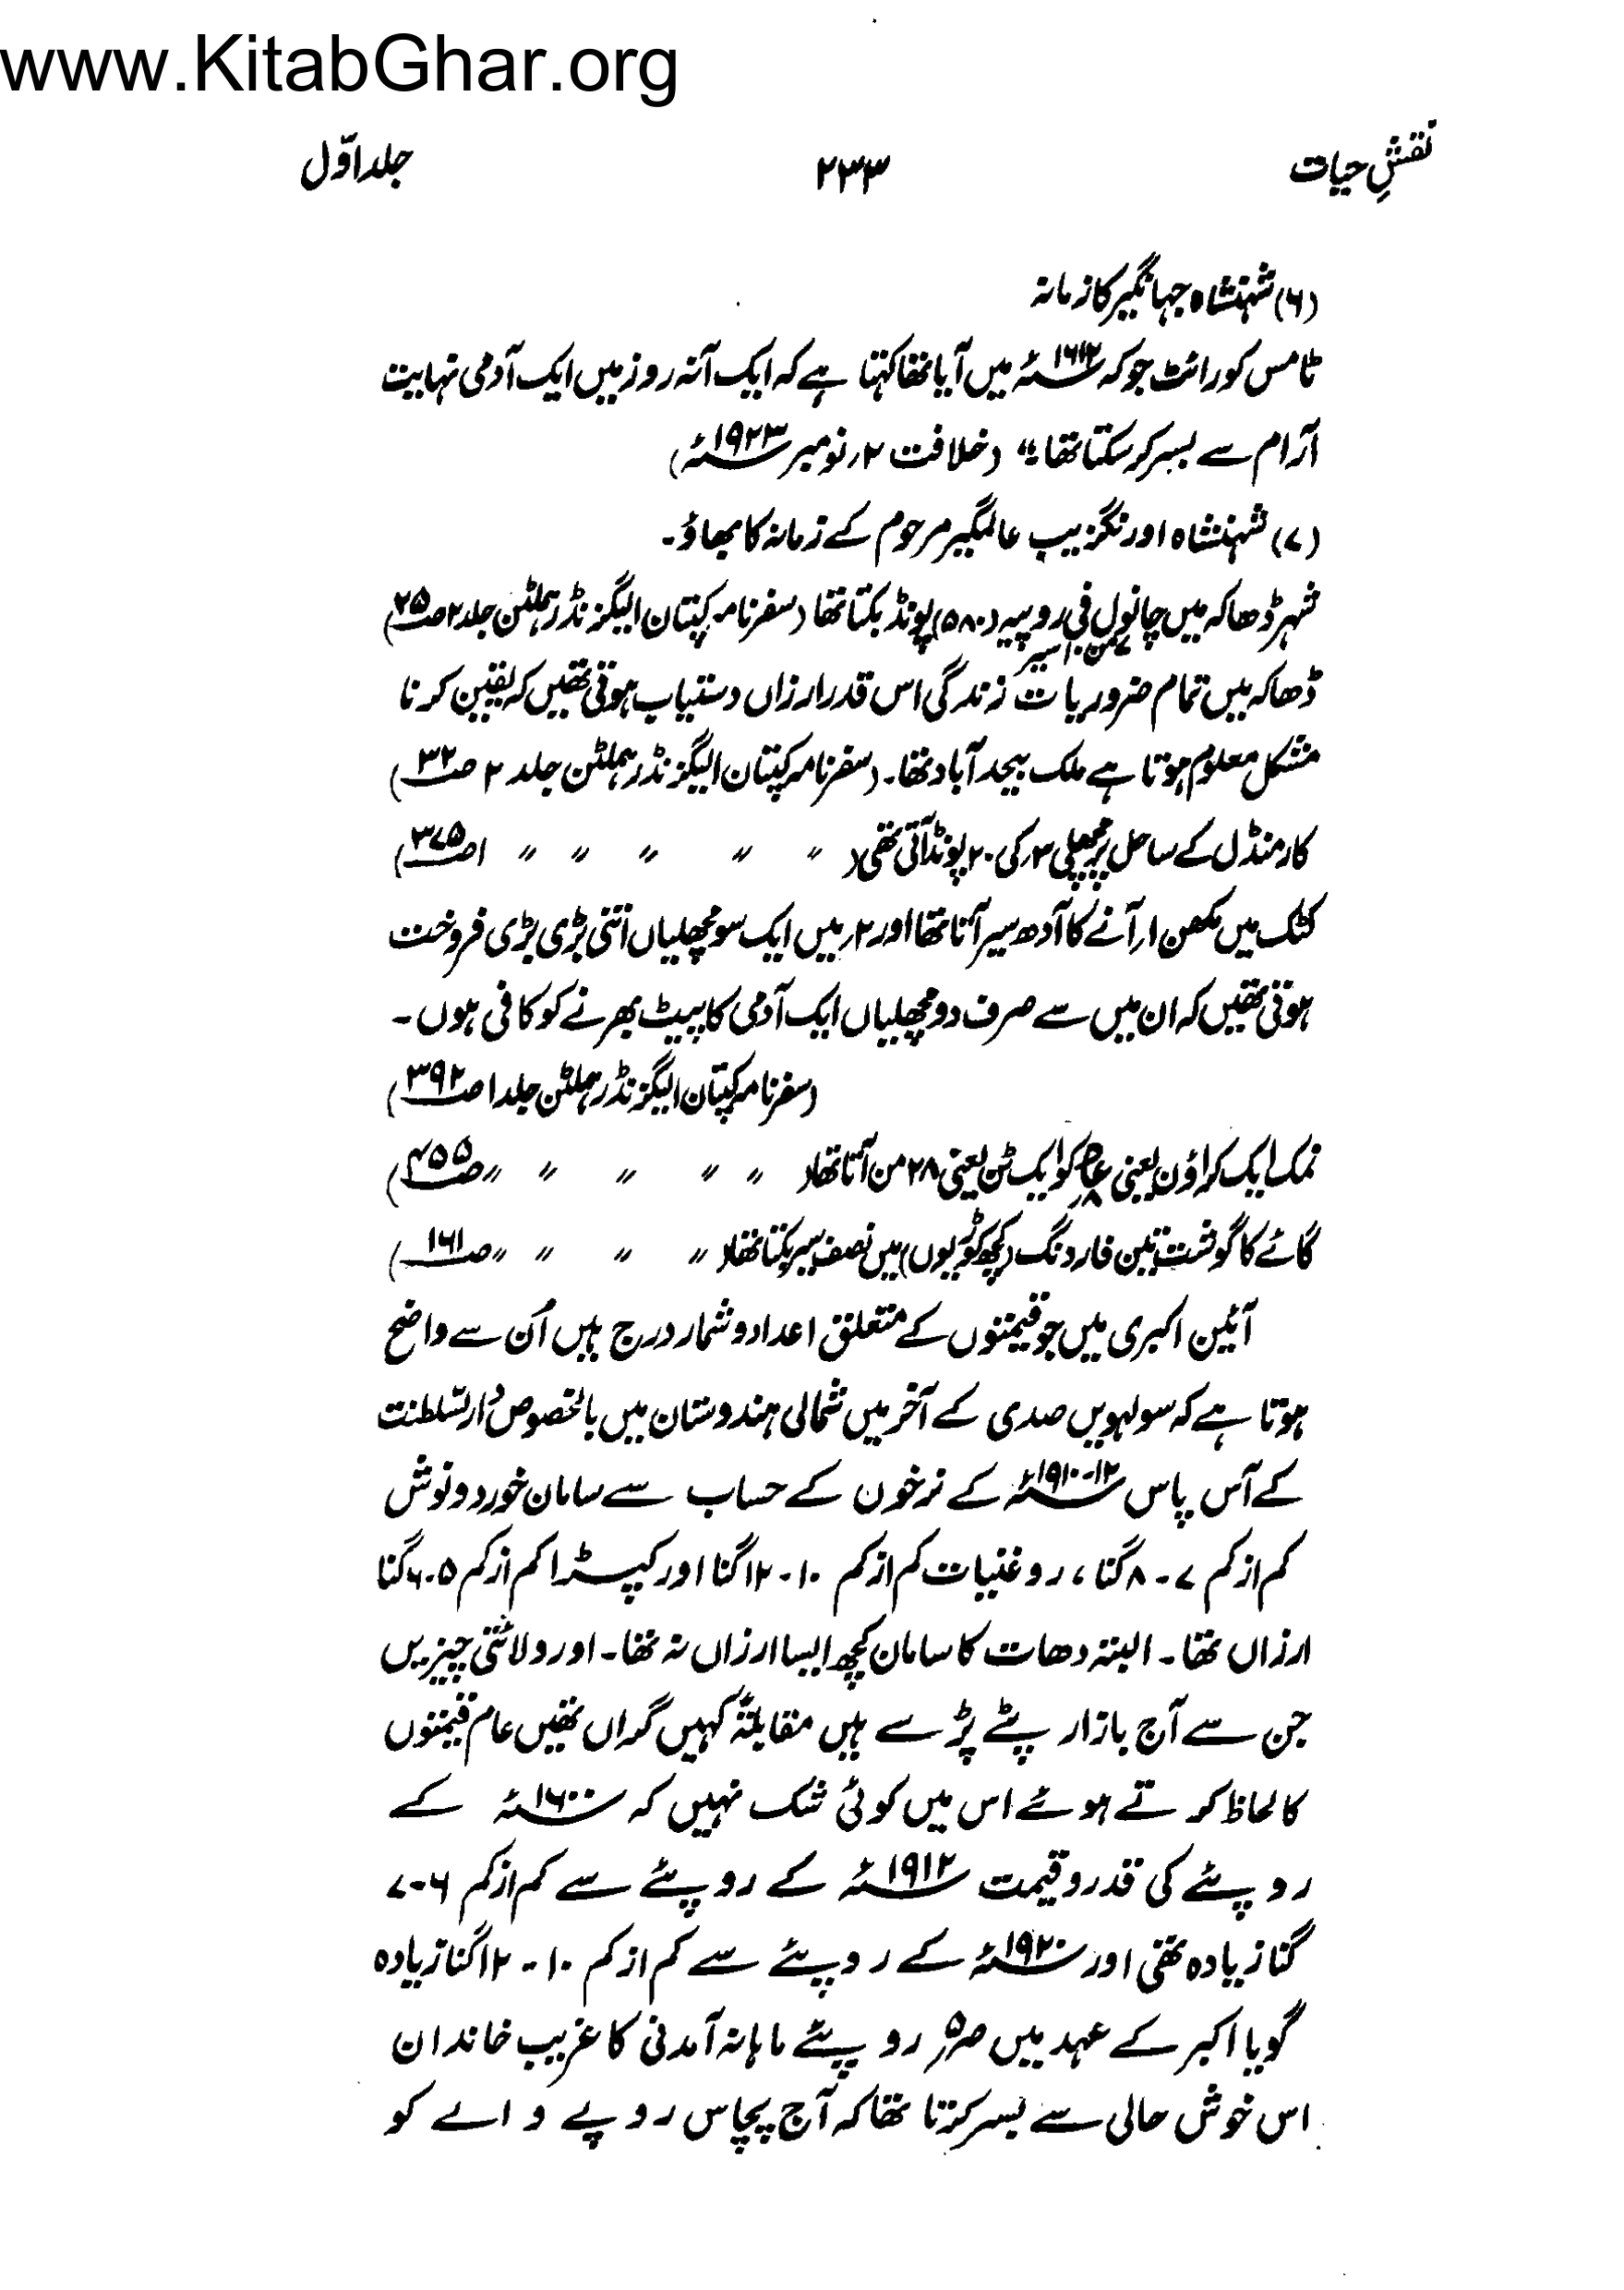 www.KitabGhar.org
نقشِ حیات ۲۳۳ جلد اوّل
(۶) شہنشاہ جہانگیر کا زمانہ
ٹامس کورائٹ جو کہ ۱۶۱۲ء میں آیا تھا کہتا ہے کہ ایک آنہ روز میں ایک آدمی نہایت
آرام سے بسر کر سکتا تھا۔“ (خلافت ۲؍ نومبر ۱۹۲۳ء)
(۷) شہنشاہ اورنگزیب عالمگیر مرحوم کے زمانہ کا بھاؤ۔
شہر ڈھاکہ میں چانول فی روپیہ (۵۸۰) پونڈ بکتا تھا (سفر نامہ کپتان الیگزنڈر ہملٹن جلد ۲ ص۲۵)
۷ من ۱۰ سیر
ڈھاکہ میں تمام ضروریات زندگی اس قدر ارزاں دستیاب ہوتی تھیں کہ یقین کرنا
مشکل معلوم ہوتا ہے ملک بیحد آباد تھا۔ (سفر نامہ کپتان الیگزنڈر ہملٹن جلد ۲ ص۳۲)
کارمنڈل کے ساحل پر مچھلی ۳؍ کی ۲۰ پونڈ آتی تھی ( ” ” ” ” ” ۱ ص۳۷۵)
کٹک میں مکھن ۱؍ آنے کا آدھ سیر آتا تھا اور ۲؍ میں ایک سو مچھلیاں اتنی بڑی بڑی فروخت
ہوتی تھیں کہ ان میں سے صرف دو مچھلیاں ایک آدمی کا پیٹ بھرنے کو کافی ہوں۔
(سفر نامہ کپتان الیگزنڈر ہملٹن جلد ۱ ص۳۹۲)
نمک ایک کراؤن یعنی کو ایک ٹن یعنی ۲۸ من آتا تھا ( ” ” ” ” ” ص۴۵۵)
گائے کا گوشت تین فاردنگ (کچھ کوڑیوں) میں نصف سیر بکتا تھا ( ” ” ” ” ص۱۶۱)
آئین اکبری میں جو قیمتوں کے متعلق اعداد و شمار درج ہیں اُن سے واضح
ہوتا ہے کہ سولہویں صدی کے آخر میں شمالی ہندوستان میں بالخصوص دُارالسّلطنت
کے آس پاس ۱۲-۱۹۱۰ء کے نرخون کے حساب سے سامان خورد و نوش
کم از کم ۷-۸ گنا، روغنیات کم از کم ۱۰-۱۲ گنا اور کپڑا کم از کم ۵-۶ گنا
ارزاں تھا۔ البتہ دھات کا سامان کچھ ایسا ارزاں نہ تھا۔ اور ولائتی چیزیں
جن سے آج بازار پٹے پڑے ہیں مقابلۃً کہیں گراں تھیں عام قیمتوں
کا لحاظ کرتے ہوئے اس میں کوئی شک نہیں کہ ۱۶۰۰ء کے
روپئے کی قدر و قیمت ۱۹۱۲ء کے روپئے سے کم از کم ۶-۷
گنا زیادہ تھی اور ۱۹۲۰ء کے روپئے سے کم از کم ۱۰-۱۲ گنا زیادہ
گویا اکبر کے عہد میں ۵ روپئے ماہانہ آمدنی کا غریب خاندان
اس خوش حالی سے بسر کرتا تھا کہ آج پچاس روپے والے کو